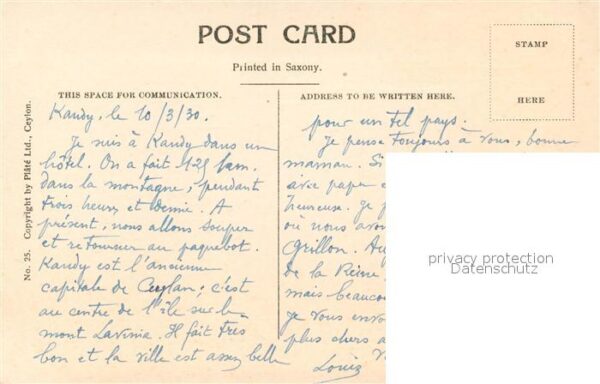 POST CARD
Printed in Saxony.
STAMP
HERE
THIS SPACE FOR COMMUNICATION.
ADDRESS TO BE WRITTEN HERE.
No. 25. Copyright by Plâté Ltd., Ceylon.
Kandy, le 10/3/30.
Je suis à Kandy dans un
hôtel. On a fait 125 km.
dans la montagne, pendant
trois heures et demie. A
présent, nous allons souper
et retourner au paquebot.
Kandy est l'ancienne
capitale de Ceylan; c'est
au centre de l'île sur le
mont Lavinia. Il fait très
bon et la ville est assez belle
pour un tel pays.
Je pense toujours à vous, bonne
maman. Si
avec papa e
heureuse. Je p
où nous avo
Grillon. Au
de la Reine
mais beaucou
je vous envo
plus chers a
V
Louis
privacy protection
Datenschutz